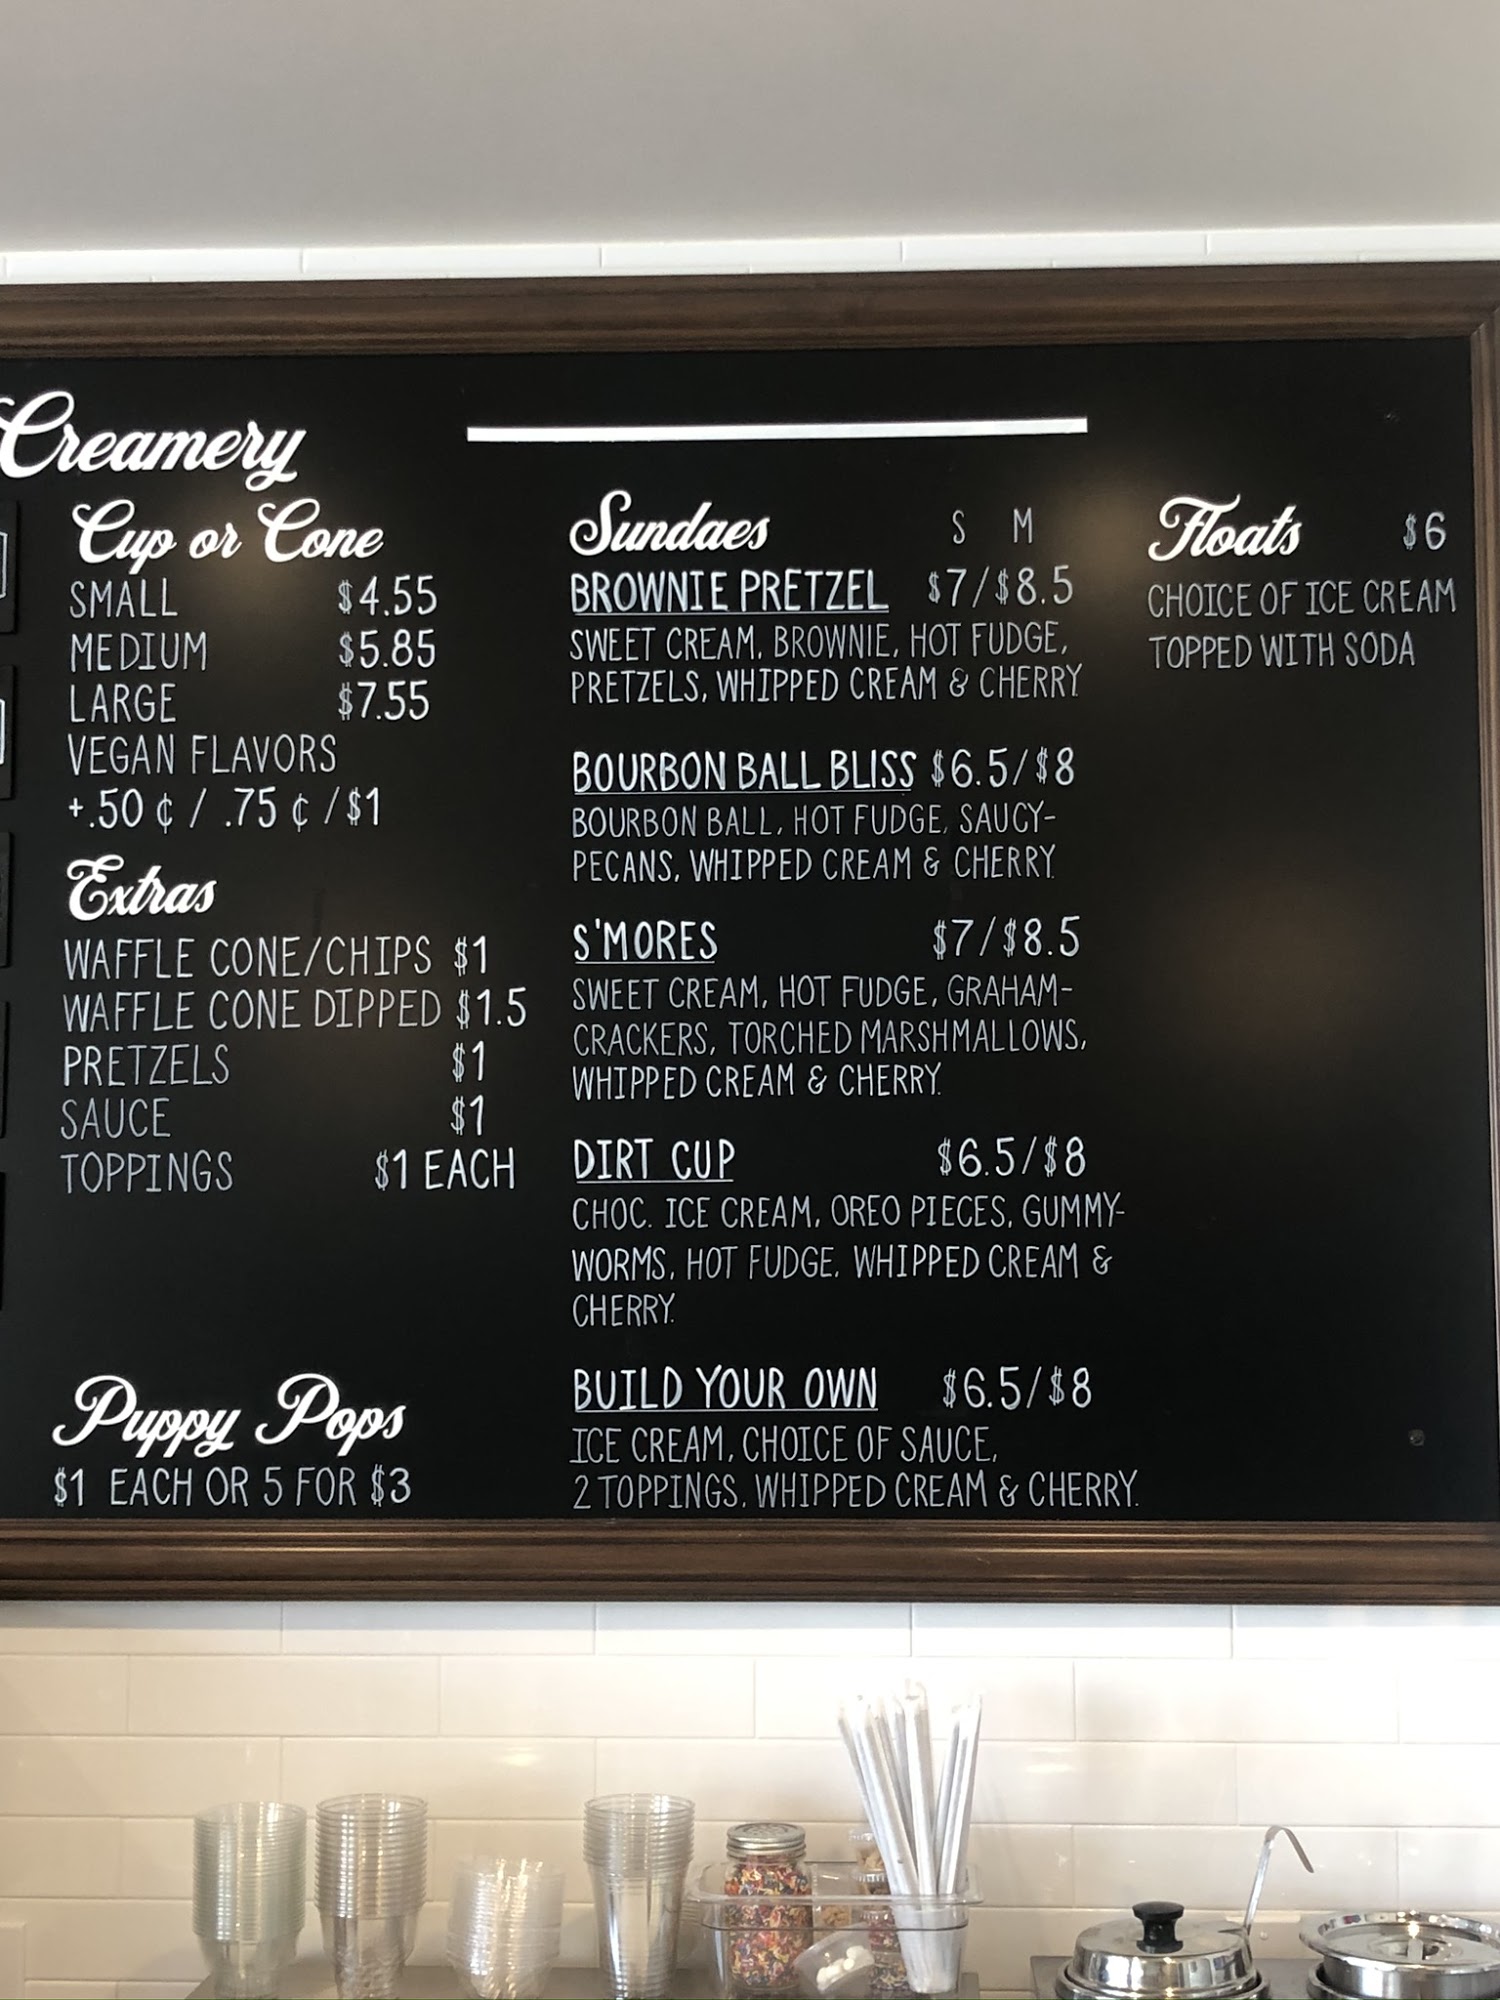 Creamery
Cup or Cone
SMALL $4.55
MEDIUM $5.85
LARGE $7.55
VEGAN FLAVORS
+.50 ¢ / .75 ¢ / $1
Extras
WAFFLE CONE/CHIPS $1
WAFFLE CONE DIPPED $1.5
PRETZELS $1
SAUCE $1
TOPPINGS $1 EACH
Puppy Pops
$1 EACH OR 5 FOR $3
Sundaes S M
BROWNIE PRETZEL $7/$8.5
SWEET CREAM, BROWNIE, HOT FUDGE,
PRETZELS, WHIPPED CREAM & CHERRY
BOURBON BALL BLISS $6.5/$8
BOURBON BALL, HOT FUDGE, SAUCY-
PECANS, WHIPPED CREAM & CHERRY
S'MORES $7/$8.5
SWEET CREAM, HOT FUDGE, GRAHAM-
CRACKERS, TORCHED MARSHMALLOWS,
WHIPPED CREAM & CHERRY.
DIRT CUP $6.5/$8
CHOC. ICE CREAM, OREO PIECES, GUMMY-
WORMS, HOT FUDGE, WHIPPED CREAM &
CHERRY.
BUILD YOUR OWN $6.5/$8
ICE CREAM, CHOICE OF SAUCE,
2 TOPPINGS, WHIPPED CREAM & CHERRY.
Floats $6
CHOICE OF ICE CREAM
TOPPED WITH SODA